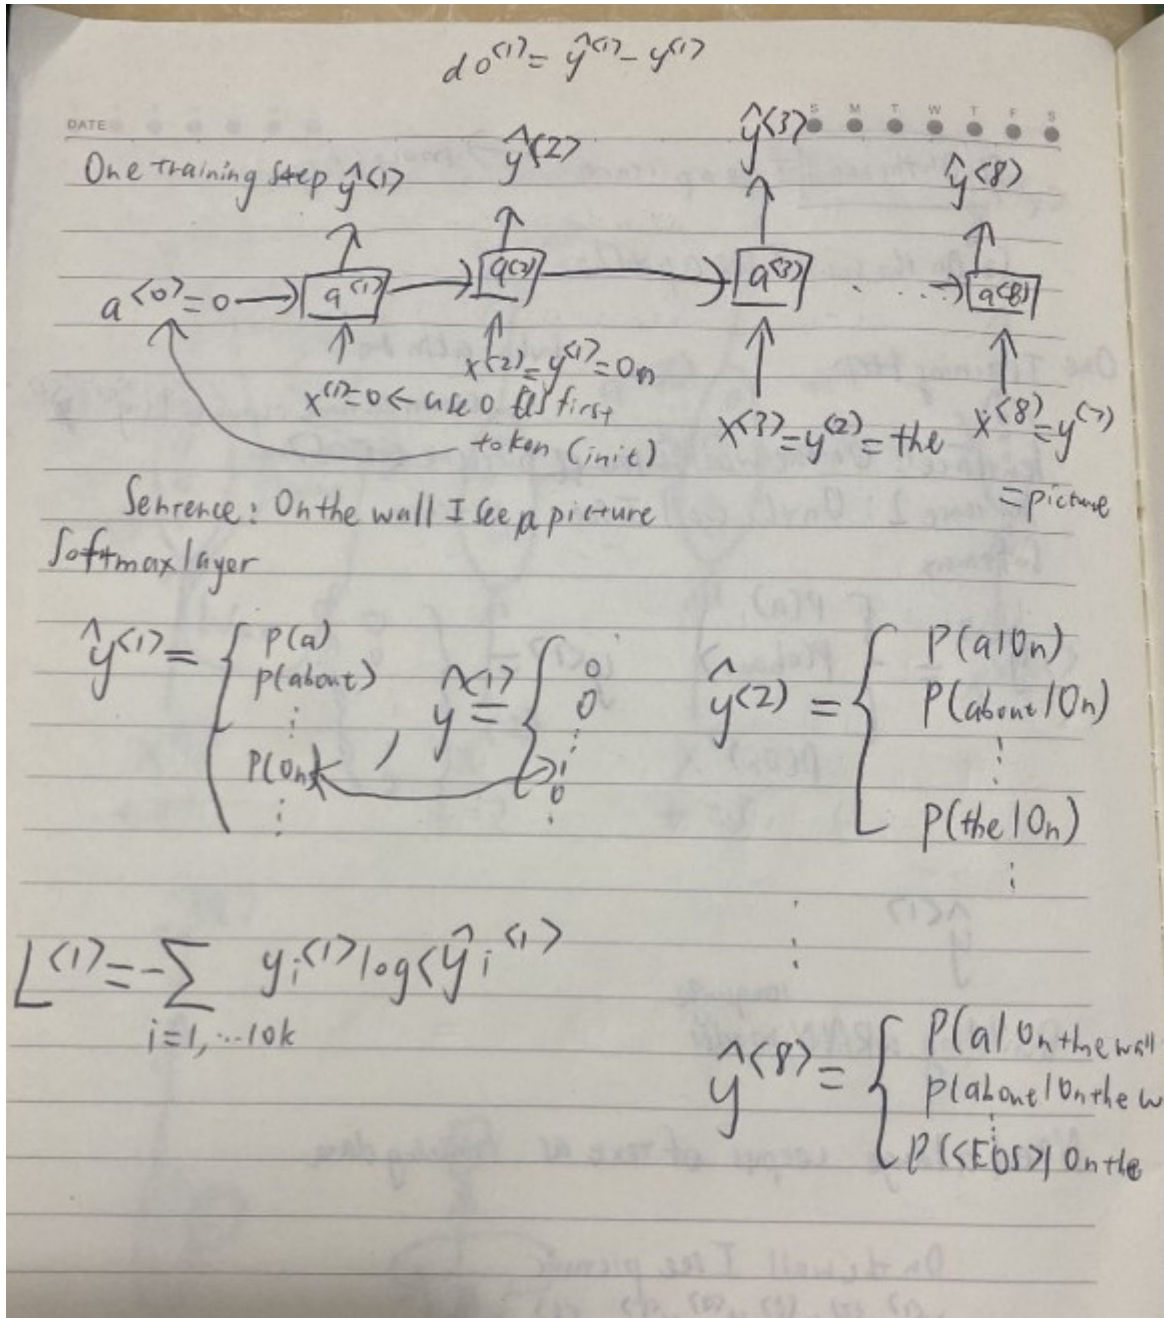 do<1> = ŷ<1> - y<1>
DATE S M T W T F S
One training step ŷ<1> ŷ<2> ŷ<3> ŷ<8>
a<0> = 0 → a<1> → a<2> → a<3> ...→ a<8>
x<2> = y<1> = On
x<1> = 0 ← use 0 as first
token (init)
x<3> = y<2> = the
x<8> = y<7>
= picture
Sentence: On the wall I see a picture
Softmax layer
ŷ<1> = { P(a)
p(about)
⋮
P(On)
⋮
, ŷ<1> = { 0
0
⋮
1
0
⋮
ŷ<2> = { P(a|On)
P(about|On)
⋮
P(the|On)
⋮
L<1> = -∑ yi<1> log<ŷi<1>
i=1, ...10k
ŷ<8> = { P(a|On the wall
p(about|On the w
P(<EOS>|On the